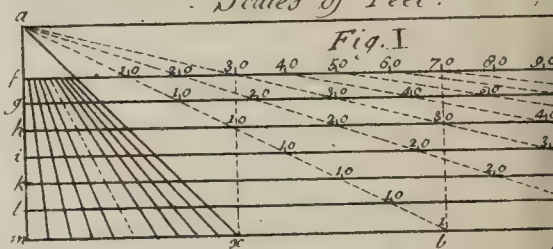 Scales of Feet.
Fig. I
a
f 1,0 2,0 3,0 4,0 5,0 6,0 7,0 8,0 9,0
g 1,0 2,0 3,0 4,0 5,0
h 1,0 2,0 3,0 4,0
i 1,0 2,0 3,
k 1,0 2,0
l 1,0
m x b